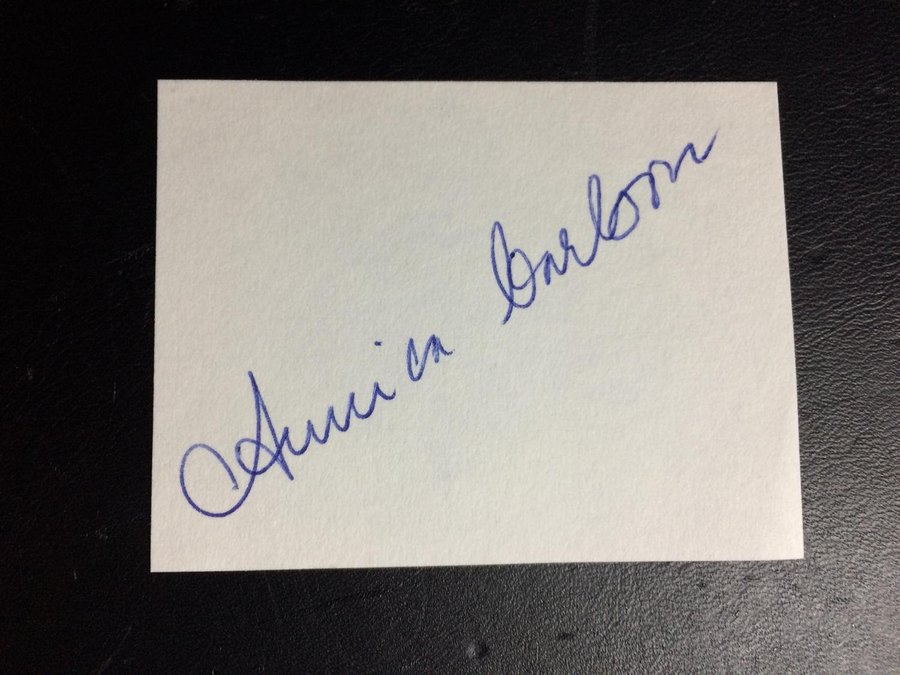 Annica Carlson